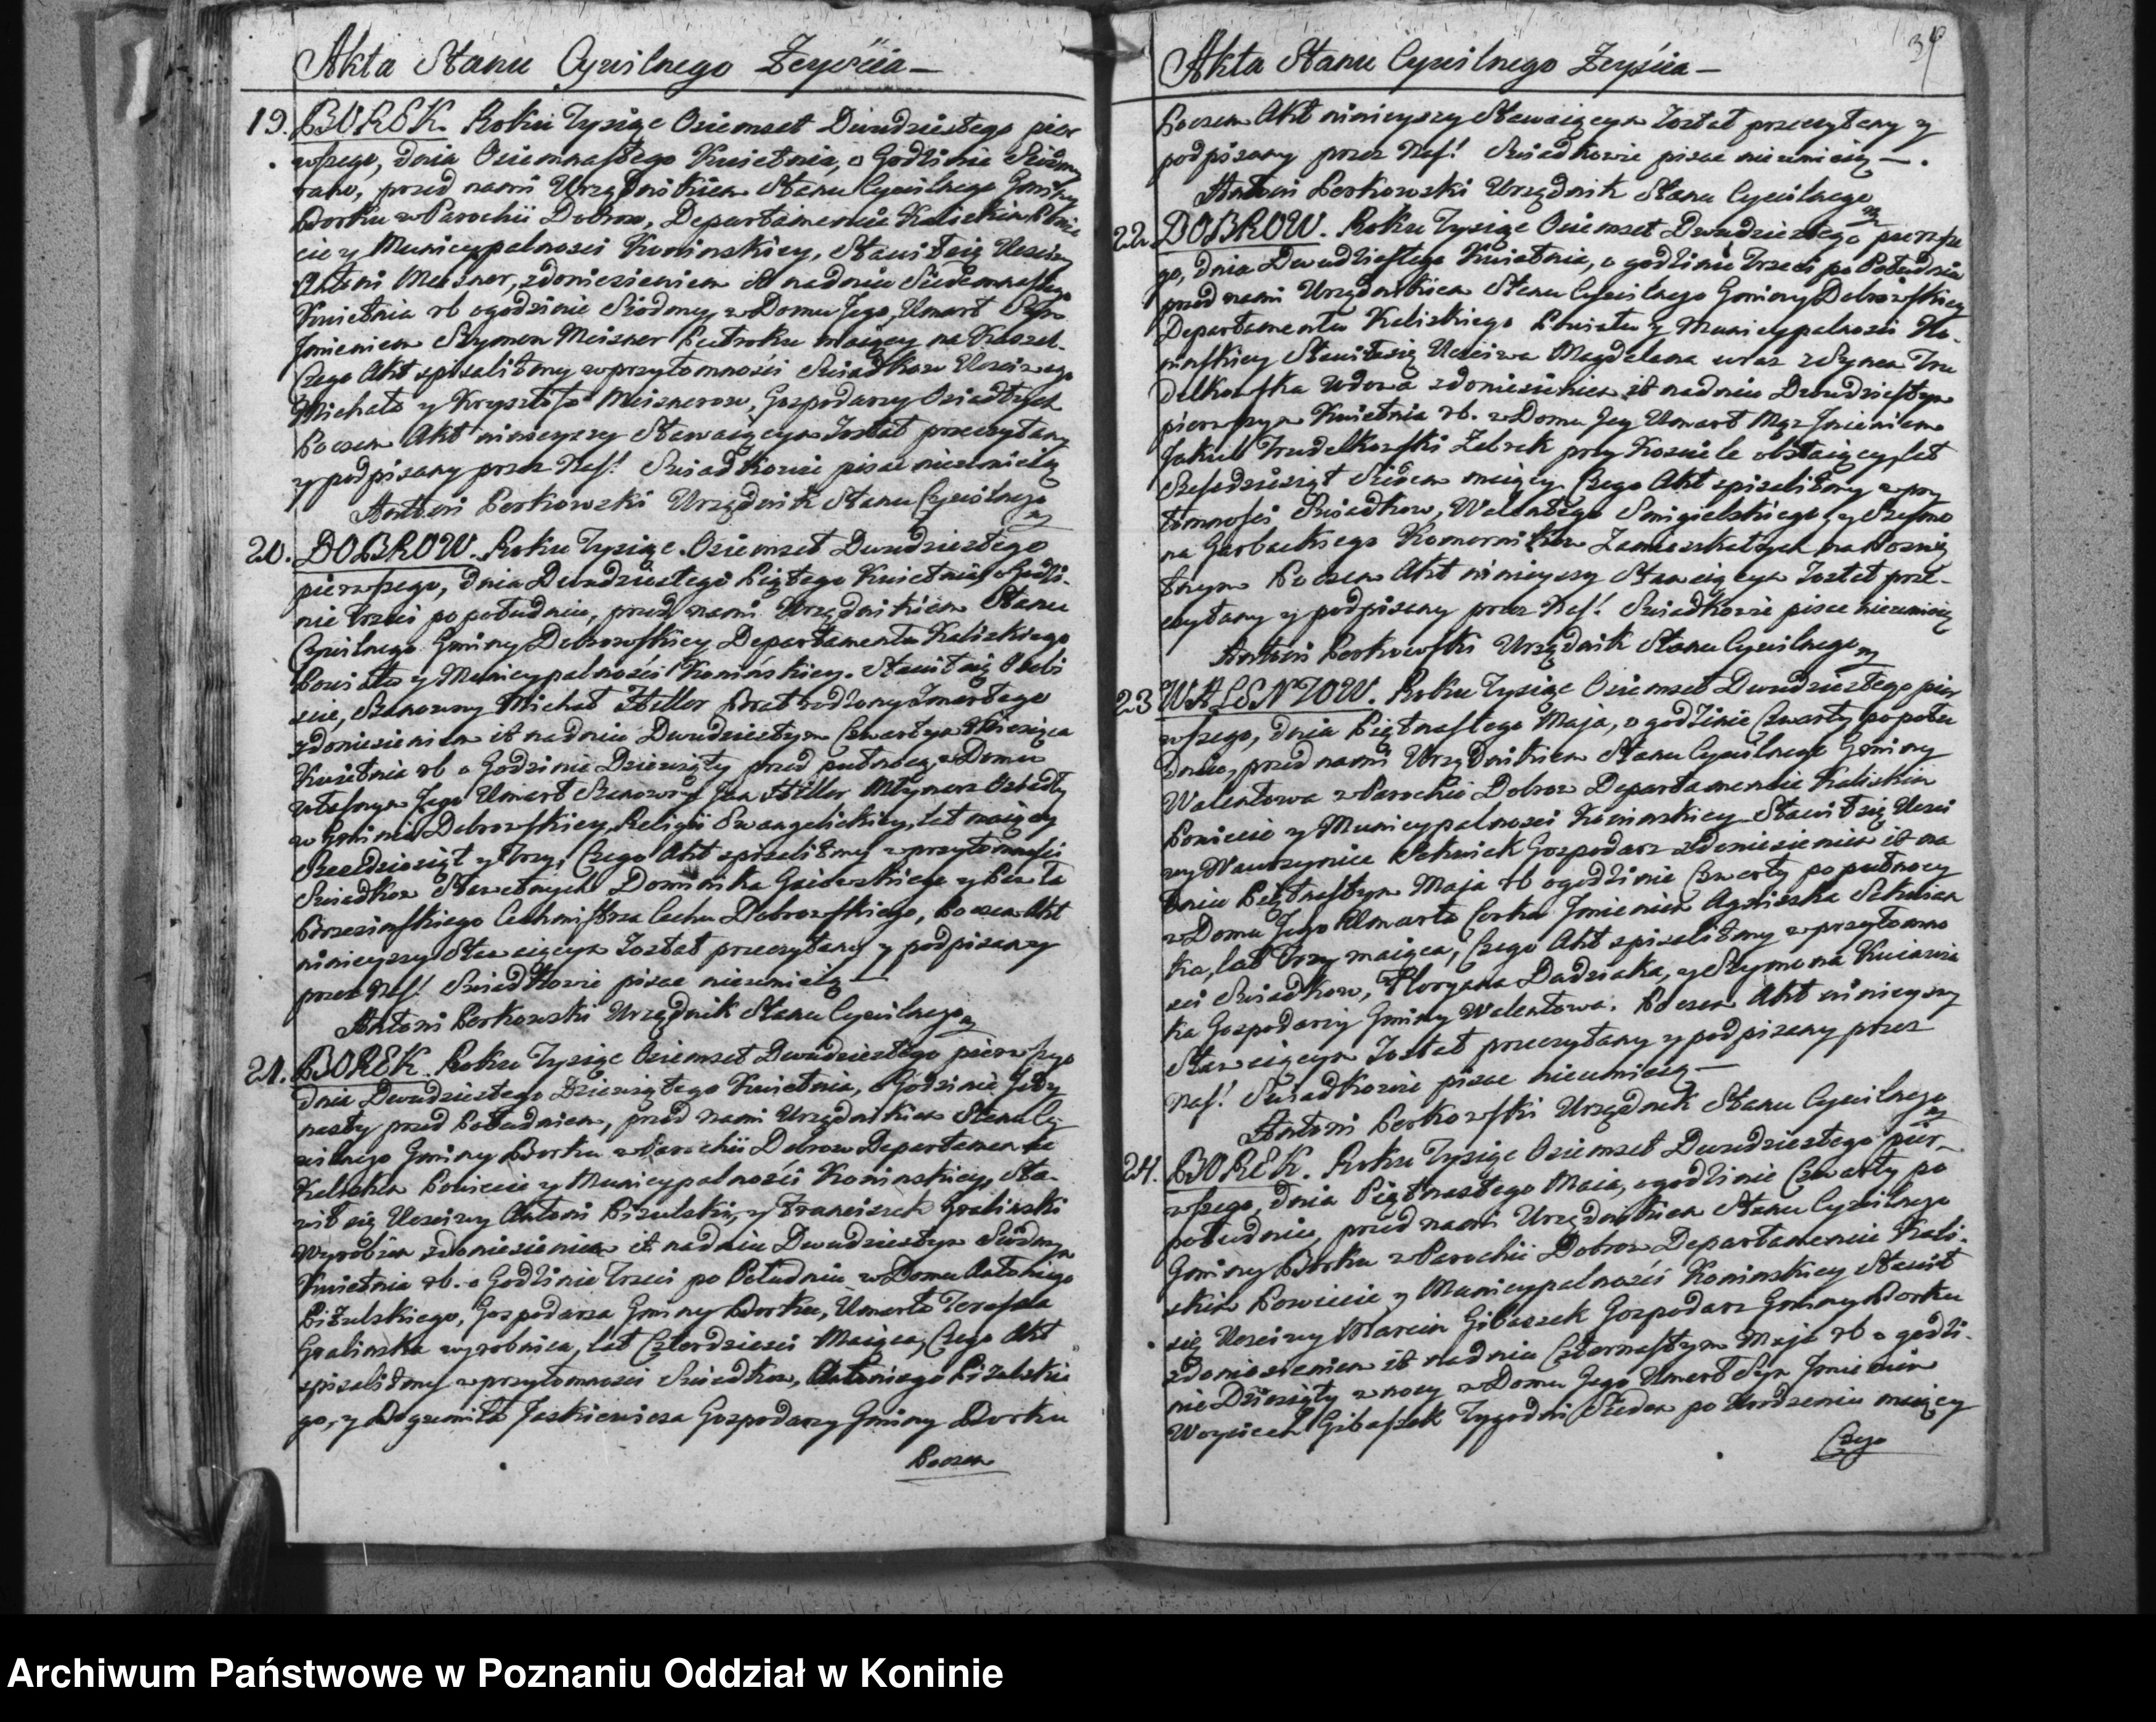 Akta Stanu Cywilnego Zeyścia —
19. BOREK. Roku Tysiąc Ośmset Dwudziestego pier
wszego, dnia Osiemnastego Kwietnia, o Godzinie Siódmey
rano, przed nami Urzędnikiem Stanu Cywilnego Gminy
Borku w Parochii Dobrow, Departamencie Kaliskim Powie
cie y Municypalności Koninskiey, Stawił się Uczciwy
Antoni Meisner, z doniesieniem iż na dniu Siedemnastego
Kwietnia rb o godzinie Siódmey w Domu Jego, Umarł Syn
Jmieniem Szymon Meisner Puł roku maiący na Kaszel.
Czego Akt spisaliśmy w przytomności Swiadkow Uczciwego
Michała y Krysztofa Meisnerow, Gospodarzy Osiadłych
Poczem Akt ninieyszy Stawaiącym Został przeczytany
y podpisany przez Nas! Swiadkowie pisać nieumieią
Antoni Perkowski Urzędnik Stanu Cywilnego
20. DOBROW. Roku Tysiąc Osiemset Dwudziestego
pierwszego, dnia Dwudziestego Piątego Kwietnia, o Godzi-
nie trzeci po południu, przed nami Urzędnikiem Stanu
Cywilnego Gminy Dobrowskiey Departamentu Kaliskiego
Powiatu y Municypalności Konińskiey. Stawił się Osobi
ście, Szanowny Michał Hiller Brat rodzony Zmarłego
z doniesieniem iż na dniu Dwudziestym Czwartym Miesiąca
Kwietnia rb o Godzinie Dziewiąty przed pułnocą w Domu
własnym Jego Umarł Szanowny Jan Hiller Młynarz Osiadły
w Gminie Dobrowskiey, Religii Ewangelickiey, lat maiący
Sześdziesiąt y trzy, Czego Akt spisaliśmy w przytomności
Swiadkow Sławetnych Dominika y Pawła
Brzezinskiego Cechmistrza Cechu Dobrowskiego, Poczem Akt
ninieyszy Stawaiącym Został przeczytany y podpisany
przez Nas! Swiadkowie pisać nieumieią —
Antoni Perkowski Urzędnik Stanu Cywilnego
21. BOREK. Roku Tysiąc Osiemset Dwudziestego pierwszego
dnia Dwudziestego Dziewiątego Kwietnia, o Godzinie Jedy
nasty przed Południem, przed nami Urzędnikiem Stanu Cy
wilnego Gminy Borku w Parochii Dobrow Departamencie
Kaliskim Powiecie y Municypalności Koninskiey, Sta-
wił się Uczciwy Antoni Pizulski, y Franciszek Gralinski
Wyrobnik z doniesieniem iż na dniu Dwudziestym Siódmym
Kwietnia rb. o Godzinie trzeci po Południu w Domu Antoniego
Pizulskiego, Gospodarza Gminy Borku, Umarła Teressa
Gralinska wyrobnica, lat Czterdzieści Maiąca, Czego Akt
spisaliśmy w przytomności Swiadkow, Antoniego Pizulskie
go, y Bogumiła Jaskiewicza Gospodarzy Gminy Borku
Poczem
Akta Stanu Cywilnego Zeyścia —
Poczem Akt ninieyszy Stawaiącym Został przeczytany y
podpisany przez Nas! Swiadkowie pisać nieumieią —.
Antoni Perkowski Urzędnik Stanu Cywilnego
22. DOBROW. Roku Tysiąc Osiemset Dwudziestego pierwsze
go, dnia Dwudziestego Kwietnia, o godzinie Trzeci po Południu
przed nami Urzędnikiem Stanu Cywilnego Gminy Dobrowskiey
Departamentu Kaliskiego Powiatu y Municypalności Ko-
ninskiey Stawiła się Uczciwa Magdalena wraz z Synem Tru
delkowska Wdowa z doniesieniem iż na dniu Dwudziestym
pierwszym Kwietnia rb. w Domu Jey Umarł Mąż Jmieniem
Jakub Trudelkowski Żebrak przy Kościele obstaiący, lat
Sześdziesiąt Siedem maiący. Czego Akt spisaliśmy w przy
tomności Swiadkow, Walentego Smigielskiego, y Szymo
na Garbackiego Komornikow Zamieszkałych na
Poczem Akt ninieyszy Stawaiącym Został prze-
czytany y podpisany przez Nas! Swiadkowie pisać nieumieią
Antoni Perkowski Urzędnik Stanu Cywilnego
23 WALENTOW. Roku Tysiąc Osiemset Dwudziestego pier
wszego, dnia Piętnastego Maja, o godzinie Czwarty po połu
dniu, przed nami Urzędnikiem Stanu Cywilnego Gminy
Walentowa w Parochii Dobrow Departamencie Kaliskim
Powiecie y Municypalności Koninskiey Stawił się Uczci
wy Wawrzyniec Gospodarz z doniesieniem iż na
dniu Piętnastym Maja rb o godzinie Czwarty po pułnocy
w Domu Jego Umarła Corka Jmieniem Agnieszka
ka, lat Trzy maiąca, Czego Akt spisaliśmy w przytomno
ści Swiadkow, Floryana Dadziaka, y Szymona Kwiatwia
ka Gospodarzy Gminy Walentowa. Poczem Akt ninieyszy
Stawaiącym Został przeczytany y podpisany przez
Nas! Swiadkowie pisać nieumieią —
Antoni Perkowski Urzędnik Stanu Cywilnego
24. BOREK. Roku Tysiąc Osiemset Dwudziestego pier-
wszego, dnia Piętnastego Maia, o godzinie Czwarty po
południu, przed nami Urzędnikiem Stanu Cywilnego
Gminy Borku w Parochii Dobrow Departamencie Kali-
skim Powiecie y Municypalności Koninskiey Stawił
się Uczciwy Marcin Gibaszek Gospodarz Gminy Borku
z doniesieniem iż na dniu Czternastym Maja rb o godzi-
nie Dziesiąty w nocy w Domu Jego Umarł Syn Jmieniem
Woyciech Gibaszek Tygodni Siedem po Urodzeniu maiący
Czego
Archiwum Państwowe w Poznaniu Oddział w Koninie